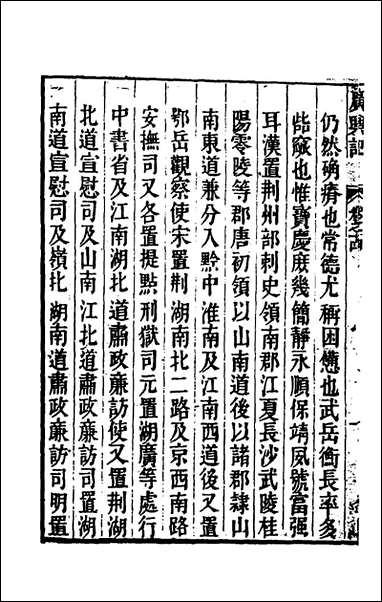 廣輿記
仍然确瘠也常德尤稱困憊也武岳衡長率多
呰窳也惟寶慶庶幾簡靜永順保靖夙號富强
耳漢置荆州部刺史領南郡江夏長沙武陵桂
陽零陵等郡唐初領以山南道後以諸郡隸山
南東道兼分入黔中淮南及江南西道後又置
鄂岳觀察使宋置荆湖南北二路及京西南路
安撫司又各置提點刑獄司元置湖廣等處行
中書省及江南湖北道肅政廉訪使又置荆湖
北道宣慰司及山南江北道肅政廉訪司置湖
南道宣慰司及嶺北湖南道肅政廉訪司明置